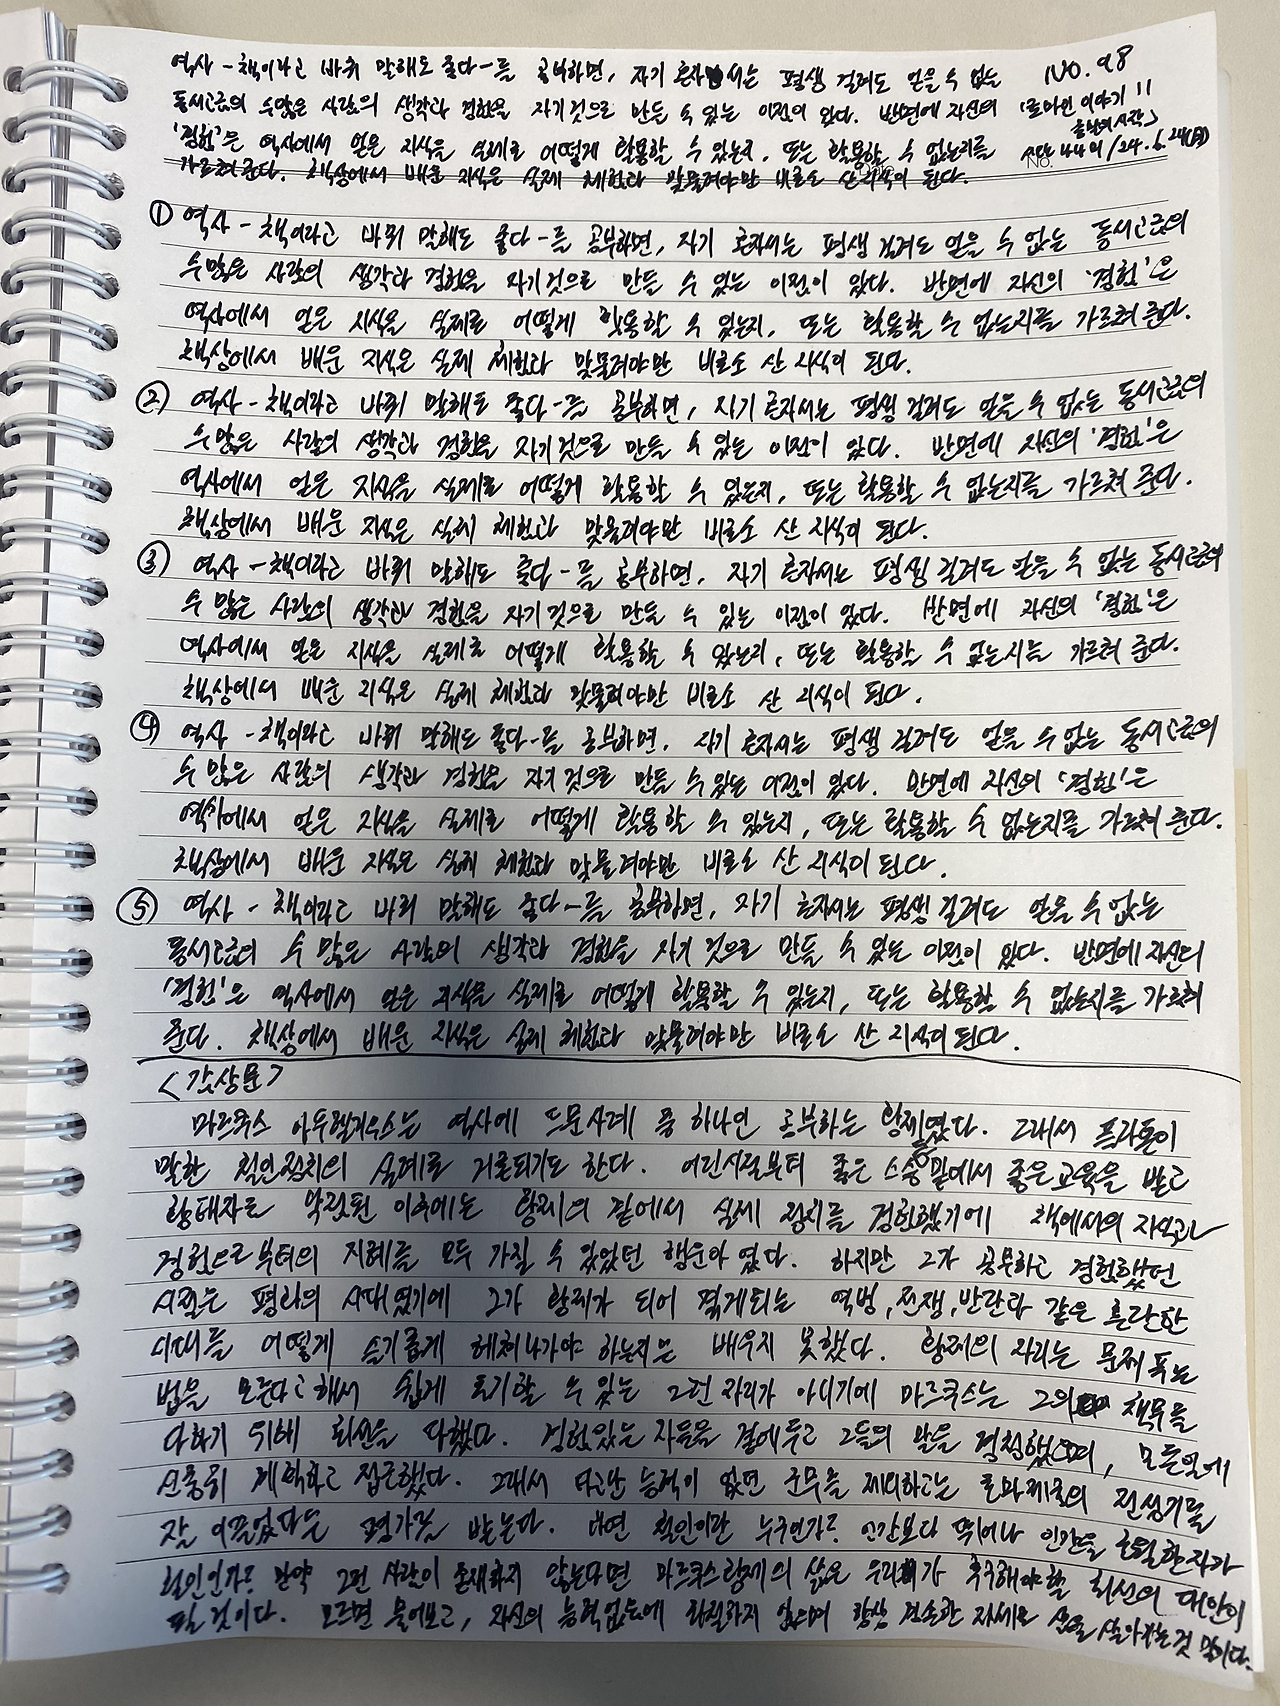 역사 - 책이라고 바꿔 말해도 좋다 - 를 공부하면, 자기 혼자서는 평생 걸려도 얻을 수 없는
No. 98
동서고금의 수많은 사람의 생각과 경험을 자기것으로 만들 수 있는 이점이 있다. 반면에 자신의
「로마인 이야기 11
'경험'은 역사에서 얻은 지식을 실제로 어떻게 활용할 수 있는지, 또는 활용할 수 없는지를
종말의 시작」
가르쳐 준다. 책상에서 배운 지식은 실제 체험과 맞물려야만 비로소 산 지식이 된다.
시오노 나나미/24.6.24(월)
No.
① 역사 - 책이라고 바꿔 말해도 좋다 - 를 공부하면, 자기 혼자서는 평생 걸려도 얻을 수 없는 동서고금의
수많은 사람의 생각과 경험을 자기것으로 만들 수 있는 이점이 있다. 반면에 자신의 '경험'은
역사에서 얻은 지식을 실제로 어떻게 활용할 수 있는지, 또는 활용할 수 없는지를 가르쳐 준다.
책상에서 배운 지식은 실제 체험과 맞물려야만 비로소 산 지식이 된다.
② 역사 - 책이라고 바꿔 말해도 좋다 - 를 공부하면, 자기 혼자서는 평생 걸려도 얻을 수 없는 동서고금의
수많은 사람의 생각과 경험을 자기것으로 만들 수 있는 이점이 있다. 반면에 자신의 '경험'은
역사에서 얻은 지식을 실제로 어떻게 활용할 수 있는지, 또는 활용할 수 없는지를 가르쳐 준다.
책상에서 배운 지식은 실제 체험과 맞물려야만 비로소 산 지식이 된다.
③ 역사 - 책이라고 바꿔 말해도 좋다 - 를 공부하면, 자기 혼자서는 평생 걸려도 얻을 수 없는 동서고금의
수 많은 사람의 생각과 경험을 자기것으로 만들 수 있는 이점이 있다. 반면에 자신의 '경험'은
역사에서 얻은 지식을 실제로 어떻게 활용할 수 있는지, 또는 활용할 수 없는지를 가르쳐 준다.
책상에서 배운 지식은 실제 체험과 맞물려야만 비로소 산 지식이 된다.
④ 역사 - 책이라고 바꿔 말해도 좋다 - 를 공부하면, 자기 혼자서는 평생 걸려도 얻을 수 없는 동서고금의
수 많은 사람의 생각과 경험을 자기것으로 만들 수 있는 이점이 있다. 반면에 자신의 '경험'은
역사에서 얻은 지식을 실제로 어떻게 활용할 수 있는지, 또는 활용할 수 없는지를 가르쳐 준다.
책상에서 배운 지식은 실제 체험과 맞물려야만 비로소 산 지식이 된다.
⑤ 역사 - 책이라고 바꿔 말해도 좋다 - 를 공부하면, 자기 혼자서는 평생 걸려도 얻을 수 없는
동서고금의 수 많은 사람의 생각과 경험을 자기 것으로 만들 수 있는 이점이 있다. 반면에 자신의
'경험'은 역사에서 얻은 지식을 실제로 어떻게 활용할 수 있는지, 또는 활용할 수 없는지를 가르쳐
준다. 책상에서 배운 지식은 실제 체험과 맞물려야만 비로소 산 지식이 된다.
<감상문>
마르쿠스 아우렐리우스는 역사에 드문사례 중 하나인 공부하는 황제였다. 그래서 플라톤이
말한 철인정치의 실례로 거론되기도 한다. 어린시절부터 좋은 스승 밑에서 좋은교육을 받고
황태자로 낙점된 이후에는 황제의 곁에서 실제 정치를 경험했기에 책에서의 지식과
경험으로부터의 지혜를 모두 가질 수 있었던 행운아 였다. 하지만 그가 공부하고 경험했던
시절은 평화의 시대였기에 그가 황제가 되어 겪게되는 역병, 전쟁, 반란과 같은 혼란한
시대를 어떻게 슬기롭게 헤쳐나가야 하는지는 배우지 못했다. 황제의 자리는 문제 푸는
법을 모른다고해서 쉽게 포기할 수 있는 그런 자리가 아니기에 마르쿠스는 그의 책무를
다하기 위해 최선을 다했다. 경험있는 자들을 곁에두고 그들의 말을 경청했으며, 모든일에
신중히 계획하고 접근했다. 그래서 타고난 능력이 없던 군무를 제외하고는 로마제국의 전성기를
잘 이끌었다는 평가를 받는다. 과연 철인이란 누구인가? 인간보다 뛰어나 인간을 초월한자가
철인인가? 만약 그런 사람이 존재하지 않는다면 마르쿠스황제의 삶은 우리가 추구해야할 최선의 대안이
될 것이다. 모르면 물어보고, 자신의 능력없음에 좌절하지 않으며 항상 겸손한 자세로 삶을 살아가는것 말이다.